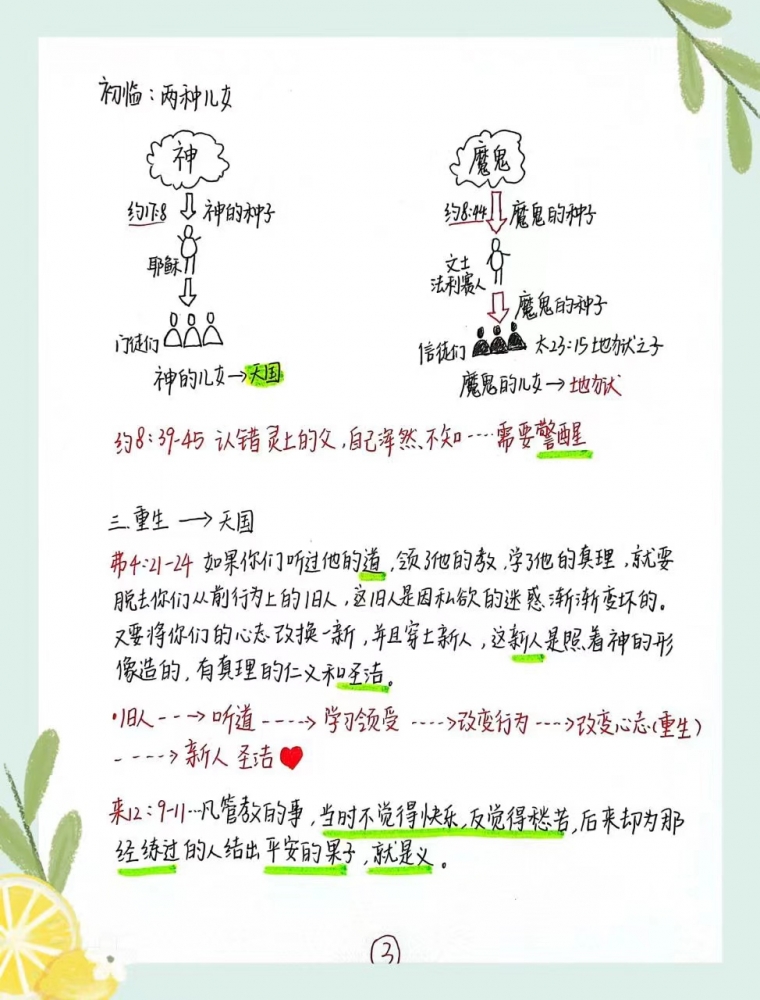 初临：两种儿女
神
约17:8 神的种子
耶稣
门徒们
神的儿女→天国
魔鬼
约8:44 魔鬼的种子
文士
法利赛人
魔鬼的种子
信徒们 太23:15地狱之子
魔鬼的儿女→地狱
约8:39-45 认错灵上的父，自己浑然不知……需要警醒
三.重生 → 天国
弗4:21-24 如果你们听过他的道，领了他的教，学了他的真理，就要
脱去你们从前行为上的旧人，这旧人是因私欲的迷惑渐渐变坏的。
又要将你们的心志改换一新，并且穿上新人，这新人是照着神的形
像造的，有真理的仁义和圣洁。
·旧人---→听道----→学习领受----→改变行为---→改变心志(重生)
----→新人 圣洁
来12:9-11…凡管教的事，当时不觉得快乐，反觉得愁苦，后来却为那
经练过的人结出平安的果子，就是义。
3